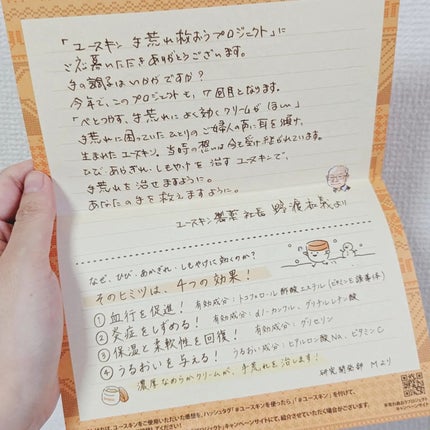 「ユースキン 手荒れ救おうプロジェクト」に
ご応募いただきありがとうございます。
手の調子はいかがですか？
今年で、このプロジェクトも、7回目となります。
「べとつかず、手荒れによく効くクリームが ほしい」
手荒れに困っていたひとりのご婦人の声に耳を傾け、
生まれたユースキン。当時の想いは今も受け継がれています。
ひび・あかぎれ・しもやけを治すユースキンで、
手荒れを治せますように。
あなたの手を救えますように。
ユースキン製薬 社長 野渡和義より
なぜ、ひび・あかぎれ・しもやけに効くのか？
そのヒミツは、4つの効果！
① 血行を促進！ 有効成分：トコフェロール酢酸エステル（ビタミンE誘導体）
② 炎症をしずめる！ 有効成分：dl-カンフル、グリチルレチン酸
③ 保湿と柔軟性を回復！ 有効成分：グリセリン
④ うるおいを与える！ うるおい成分：ヒアルロン酸Na、ビタミンC
濃厚なめらかクリームが、手荒れを治します！
研究開発部 Mより
ユースキンをご使用いただいた感想を、ハッシュタグ「#ユースキンを使ったら」「#ユースキン」を付けて、
キャンペーンサイトにて、紹介させていただく場合がございます。